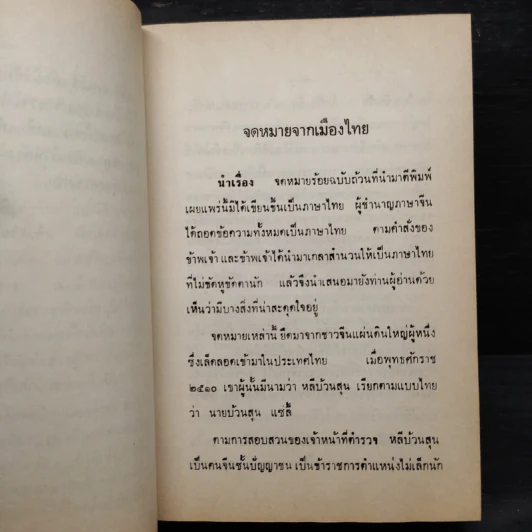 จดหมายจากเมืองไทย
นำเรื่อง จดหมายร้อยฉบับถ้วนที่นำมาตีพิมพ์
เผยแพร่นี้มิได้เขียนขึ้นเป็นภาษาไทย ผู้ชำนาญภาษาจีน
ได้ถอดข้อความทั้งหมดเป็นภาษาไทย ตามคำสั่งของ
ข้าพเจ้า และข้าพเจ้าได้นำมาเกลาสำนวนให้เป็นภาษาไทย
ที่ไม่ขัดหูขัดตานัก แล้วจึงนำเสนอมายังท่านผู้อ่านด้วย
เห็นว่ามีบางสิ่งที่น่าสะดุดใจอยู่
จดหมายเหล่านี้ ยึดมาจากชาวจีนแผ่นดินใหญ่ผู้หนึ่ง
ซึ่งเล็ดลอดเข้ามาในประเทศไทย เมื่อพุทธศักราช
๒๕๑๐ เขาผู้นั้นมีนามว่า หลีบ้วนสุน เรียกตามแบบไทย
ว่า นายบ้วนสุน แซ่ลี้
ตามการสอบสวนของเจ้าหน้าที่ตำรวจ หลีบ้วนสุน
เป็นคนจีนชั้นปัญญาชน เป็นข้าราชการตำแหน่งไม่เล็กนัก